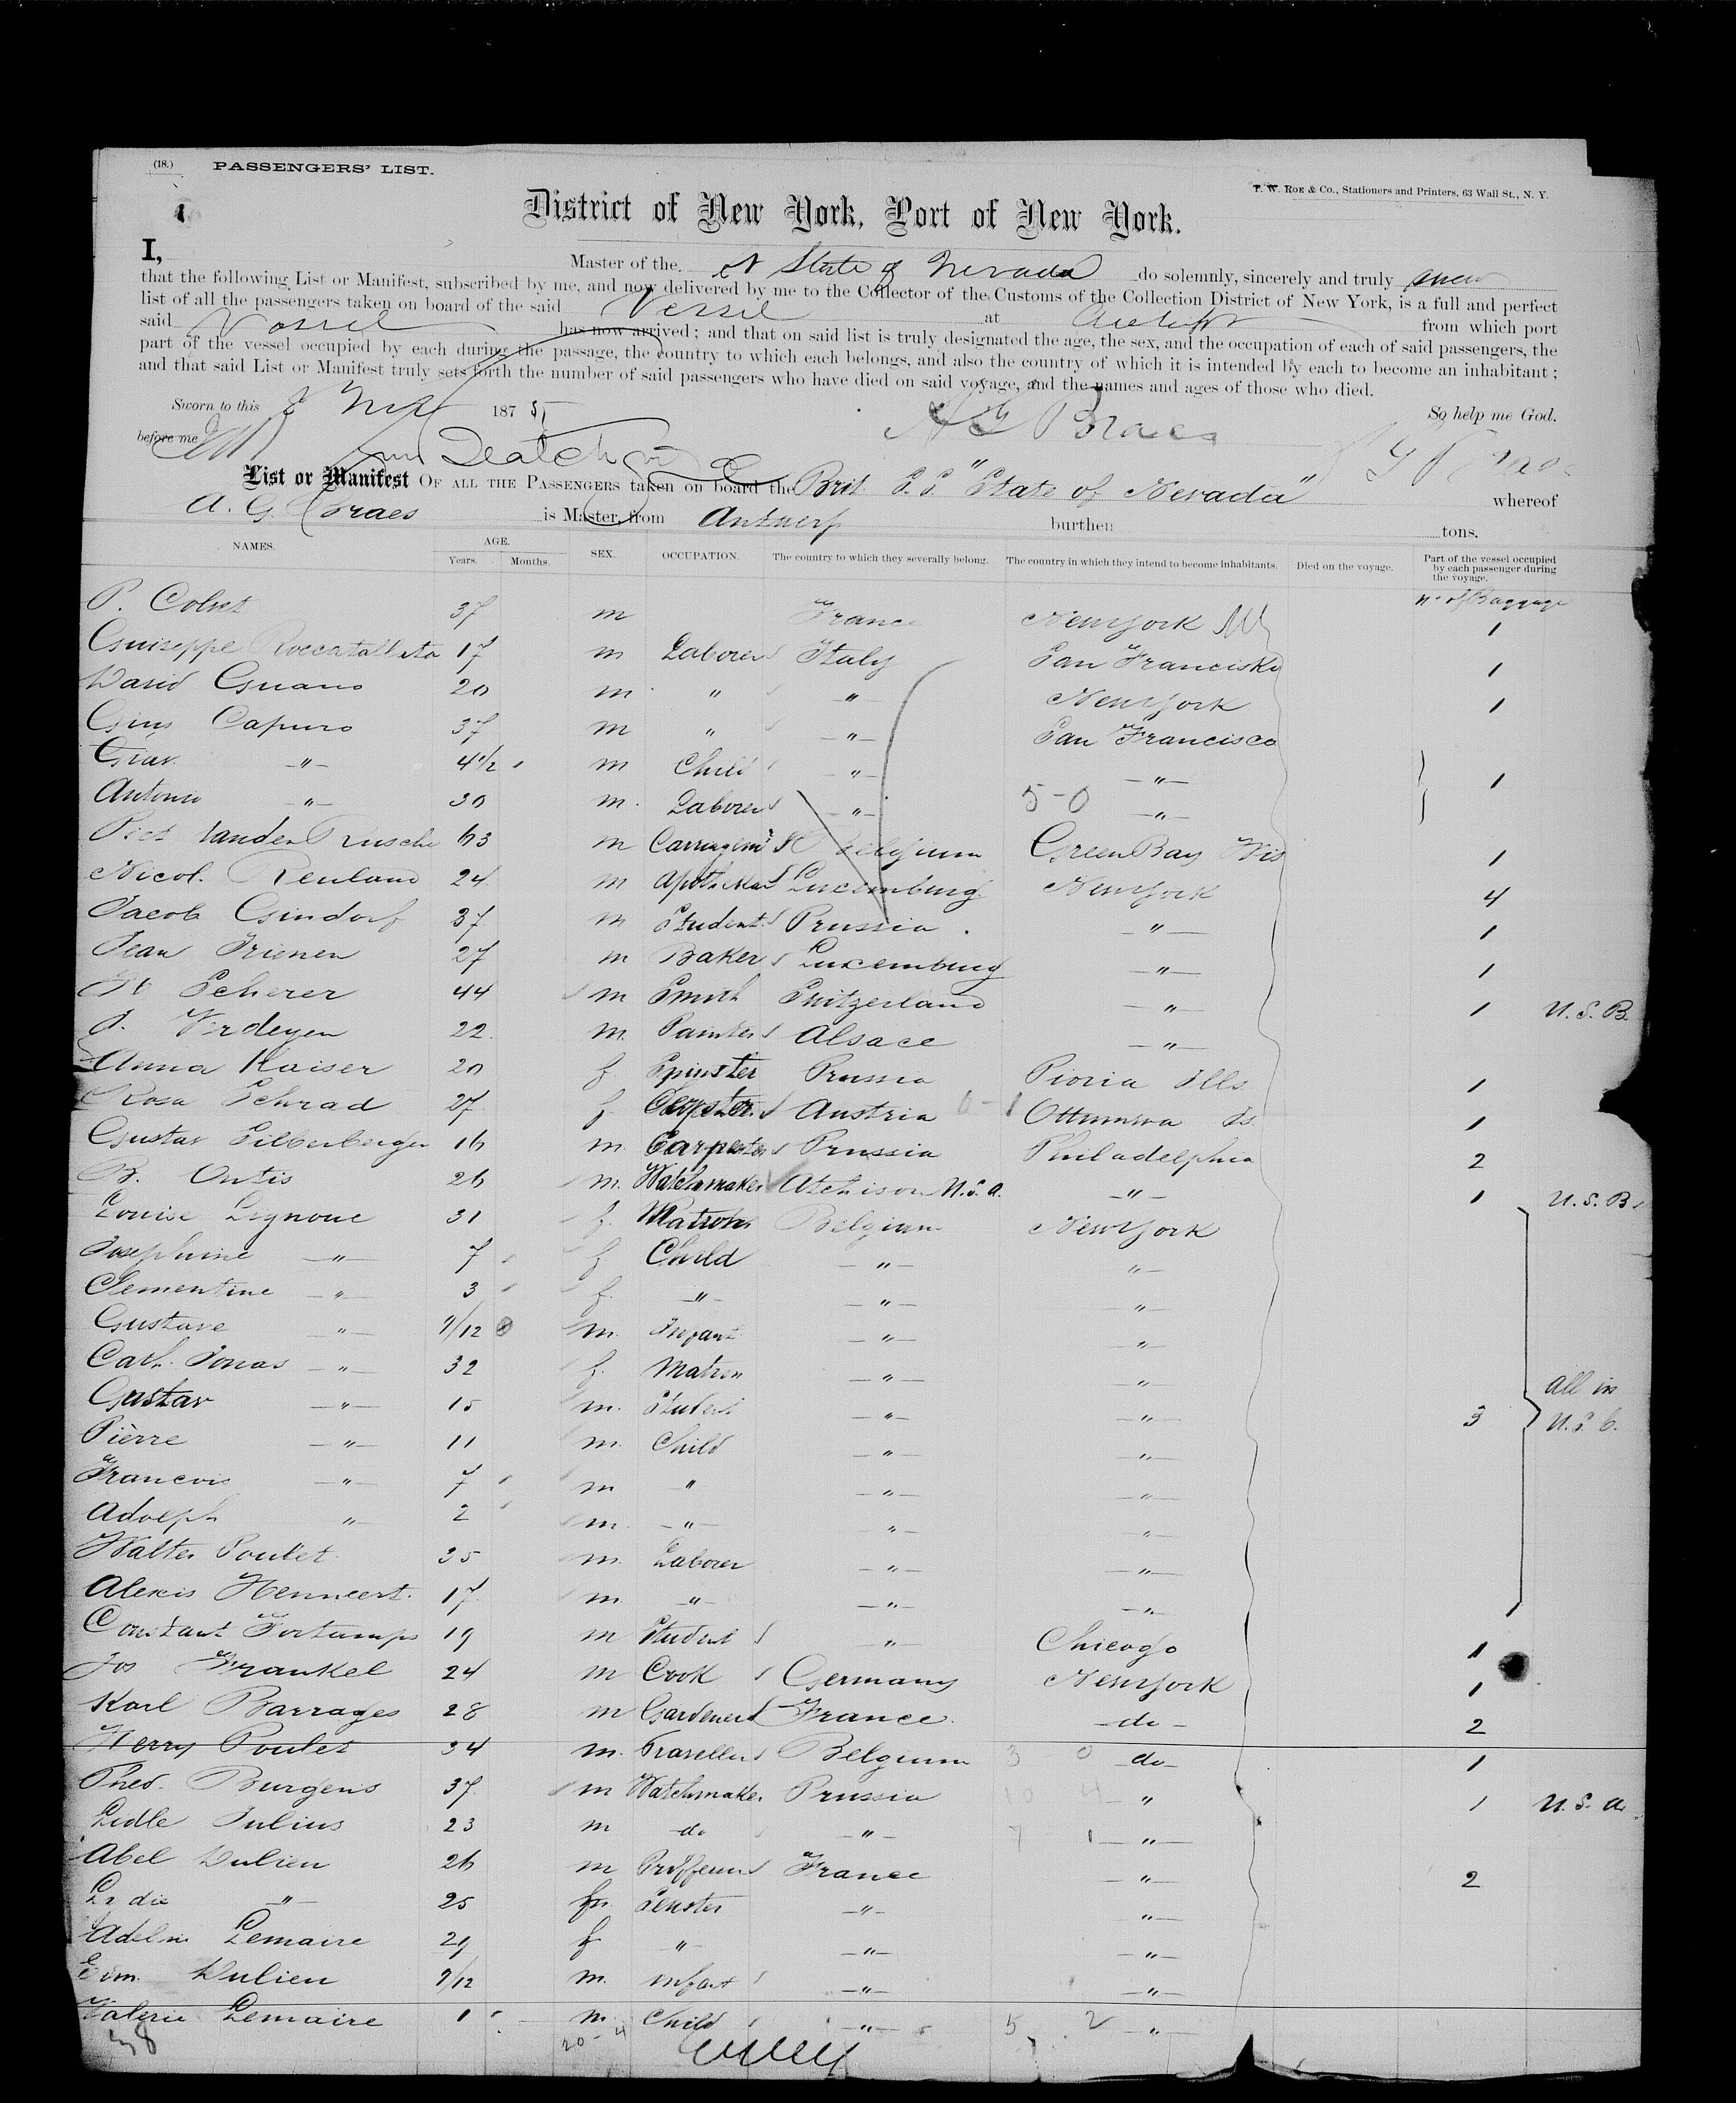 (18.) PASSENGERS' LIST.
T. W. ROE & Co., Stationers and Printers, 63 Wall St., N. Y.
1
District of New York, Port of New York.
I, Master of the State of Nevada do solemnly, sincerely and truly swear
that the following List or Manifest, subscribed by me, and now delivered by me to the Collector of the Customs of the Collection District of New York, is a full and perfect
list of all the passengers taken on board of the said Vessel at from which port
said Vessel has now arrived; and that on said list is truly designated the age, the sex, and the occupation of each of said passengers, the
part of the vessel occupied by each during the passage, the country to which each belongs, and also the country of which it is intended by each to become an inhabitant;
and that said List or Manifest truly sets forth the number of said passengers who have died on said voyage, and the names and ages of those who died.
Sworn to this 187 5 So help me God.
before me A G Braes
List or Manifest OF ALL THE PASSENGERS taken on board the Brit S.S. "State of Nevada" whereof
A. G. Braes is Master, from Antwerp burthen tons.
NAMES. AGE. Years. Months. SEX. OCCUPATION. The country to which they severally belong. The country in which they intend to become inhabitants. Died on the voyage. Part of the vessel occupied by each passenger during the voyage.
No of Baggage
P. Colnet 37 m France New York 1
Guiseppe Roccatallata 17 m Laborer Italy San Francisko 1
David Guano 20 m " " New York 1
Gius Capuro 37 m " " San Francisco
Giav. " 4 1/2 m Child " " 1
Antonio " 30 m. Laborer " 5-0 "
Piet Vanden 63 m Belgium Green Bay Wis 1
Nicol. Reuland 24 m Luxemburg New York 4
Jacob Gindorf 37 m Student Prussia " 1
Jean Trienen 27 m Baker Luxemburg " 1
H Scherer 44 m Smith Switzerland " 1 U.S.B.
J. Verdeyen 22 m. Painter Alsace "
Anna Kaiser 20 f Spinster Prussia Pioria Ills 1
Rosa Schrad 27 f Austria Ottumwa 1
Gustav Silberberger 16 m Carpenter Prussia Philadelphia 2
B. Ontis 26 m. Watchmaker Atchison U.S.A. " 1 U.S.B.
Louise Lignoue 31 f. Matron Belgium New York
Josephine " 7 f Child " "
Clementine " 3 f. " " "
Gustave " 9/12 m. Infant " "
Cath. Jonas " 32 f. Matron " " All in
Gustav " 15 m. Student " " 3 U.S.C.
Pièrre " 11 m. Child " "
Francois " 7 m " " "
Adolph " 2 m. " " "
Walter Poulet 35 m. Laborer " "
Alexis Henneert. 17 m " " "
Constant Fortamps 19 m Student " Chicago 1
Jos Frankel 24 m Cook Germany New York 1
Karl Barrages 28 m Gardener France do 2
Herry Poulet 34 m. Traveller Belgium 3 0 do 1
Theo. Burgens 37 m Watchmaker Prussia 10 4 " 1 U.S.A.
Lidle Julius 23 m do " 7 1 "
Abel Dulieu 26 m France " 2
" 25 " "
Lemaire 29 f " " "
Edm. Dulieu 9/12 m. Infant " "
Valerie Lemaire 1 m. Child " 5 2 "
38 20-4